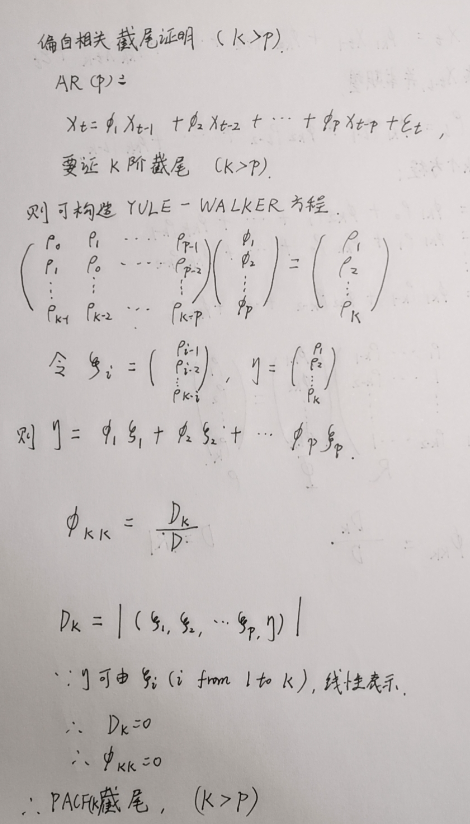 偏自相关截尾证明 (K>P)
AR(p):
Xt = ϕ1 Xt-1 + ϕ2 Xt-2 + ⋯ + ϕp Xt-p + εt,
要证 K 阶截尾 (K>P).
则可构造 YULE-WALKER 方程
(ρ0 ρ1 ⋯⋯ ρp-1) (ϕ1) = (ρ1)
(ρ1 ρ0 ⋯⋯ ρp-2) (ϕ2) (ρ2)
(⋮ ⋮ ⋮) (⋮) (⋮)
(ρk-1 ρk-2 ⋯ ρk-p) (ϕp) (ρk)
令 ξi = (ρi-1 ρi-2 ⋮ ρk-i), η = (ρ1 ρ2 ⋮ ρk)
则 η = ϕ1 ξ1 + ϕ2 ξ2 + ⋯ ϕp ξp.
ϕKK = DK / D
DK = |(ξ1, ξ2, ⋯ ξp, η)|
∵ η 可由 ξi (i from 1 to K), 线性表示.
∴ DK=0
∴ ϕKK=0
∴ PACF(K)截尾, (K>P)